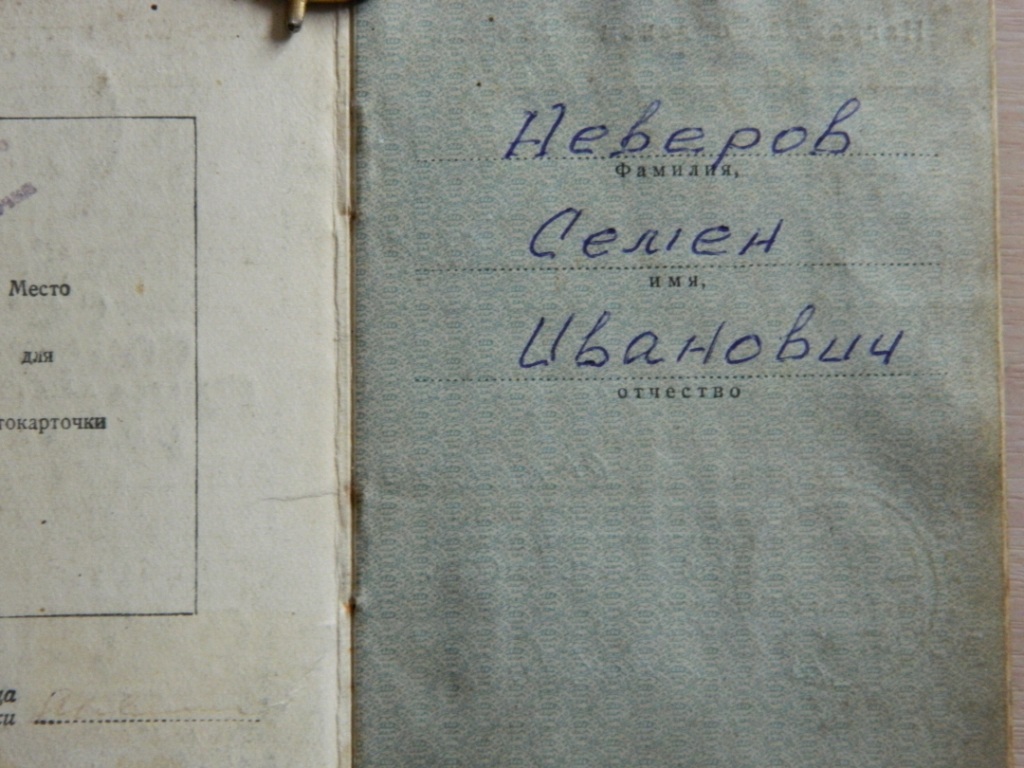 Место
для
токарточки
Неверов
Фамилия,
Семен
имя,
Иванович
отчество